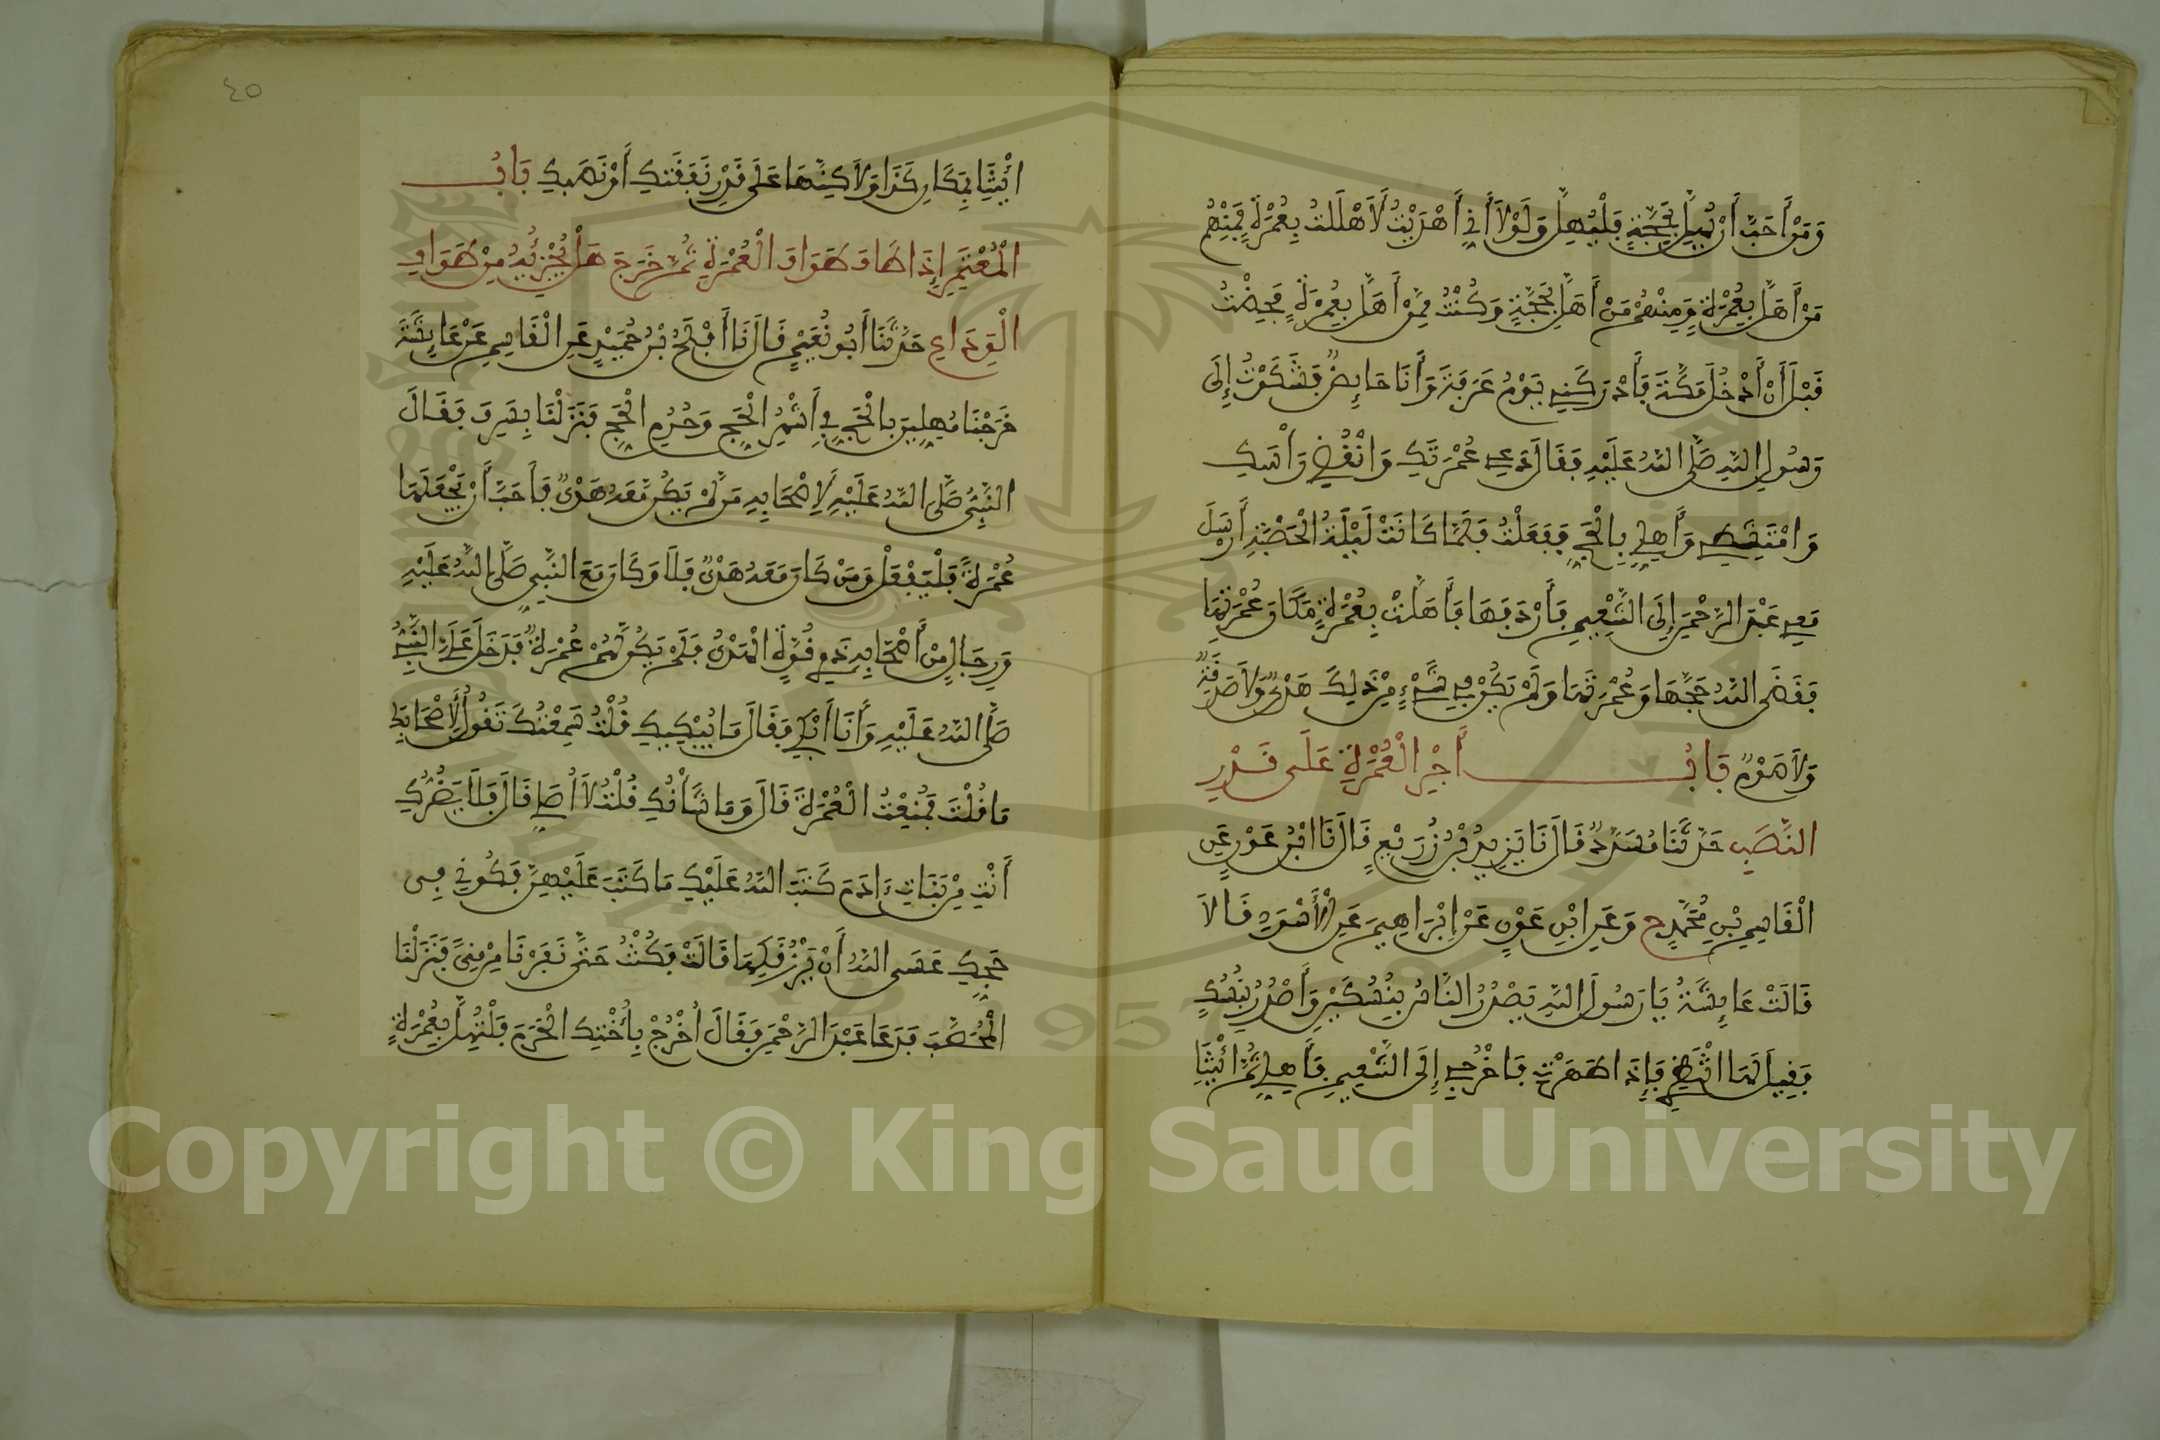 وَمَنْ أَحَبَّ أَنْ يُهِلَّ بِحَجَّةٍ فَلْيُهِلَّ وَلَوْلَا أَنِّي أَهْدَيْتُ لَأَهْلَلْتُ بِعُمْرَةٍ فَمِنْهُم
مَنْ أَهَلَّ بِعُمْرَةٍ وَمِنْهُمْ مَنْ أَهَلَّ بِحَجَّةٍ وَكُنْتُ مِمَّنْ أَهَلَّ بِعُمْرَةٍ فَحِضْتُ
قَبْلَ أَنْ أَدْخُلَ مَكَّةَ فَأَدْرَكَنِي يَوْمُ عَرَفَةَ وَأَنَا حَائِضٌ فَشَكَوْتُ إِلَى
رَسُولِ اللَّهِ صَلَّى اللَّهُ عَلَيْهِ فَقَالَ دَعِي عُمْرَتَكِ وَانْقُضِي رَأْسَكِ
وَامْتَشِطِي وَأَهِلِّي بِالْحَجِّ فَفَعَلْتُ فَلَمَّا كَانَتْ لَيْلَةُ الْحَصْبَةِ أَرْسَلَ
مَعِي عَبْدَ الرَّحْمَنِ إِلَى التَّنْعِيمِ فَأَرْدَفَهَا فَأَهَلَّتْ بِعُمْرَةٍ مَكَانَ عُمْرَتِهَا
فَقَضَى اللَّهُ حَجَّهَا وَعُمْرَتَهَا وَلَمْ يَكُنْ فِي شَيْءٍ مِنْ ذَلِكَ هَدْيٌ وَلَا صَدَقَةٌ
وَلَا صَوْمٌ بَابُ أَجْرِ الْعُمْرَةِ عَلَى قَدْرِ
النَّصَبِ حَدَّثَنَا مُسَدَّدٌ قَالَ نَا يَزِيدُ بْنُ زُرَيْعٍ قَالَ نَا ابْنُ عَوْنٍ عَنِ
الْقَاسِمِ بْنِ مُحَمَّدٍ ح وَعَنِ ابْنِ عَوْنٍ عَنْ إِبْرَاهِيمَ عَنِ الْأَسْوَدِ قَالَا
قَالَتْ عَائِشَةُ يَا رَسُولَ اللَّهِ يَصْدُرُ النَّاسُ بِنُسُكَيْنِ وَأَصْدُرُ بِنُسُكٍ
فَقِيلَ لَهَا انْتَظِرِي فَإِذَا طَهَرْتِ فَاخْرُجِي إِلَى التَّنْعِيمِ فَأَهِلِّي ثُمَّ ائْتِيَا
٤٥
ائْتِيَا بِمَكَانِ كَذَا وَلَاكِنَّهَا عَلَى قَدْرِ نَفَقَتِكِ أَوْ نَصَبِكِ بَابُ
الْمُعْتَمِرِ إِذَا طَافَ طَوَافَ الْعُمْرَةِ ثُمَّ خَرَجَ هَلْ يُجْزِيهِ مِنْ طَوَافِ
الْوَدَاعِ حَدَّثَنَا أَبُو نُعَيْمٍ قَالَ نَا أَفْلَحُ بْنُ حُمَيْدٍ عَنِ الْقَاسِمِ عَنْ عَائِشَةَ
خَرَجْنَا مُهِلِّينَ بِالْحَجِّ فِي أَشْهُرِ الْحَجِّ وَحُرُمِ الْحَجِّ فَنَزَلْنَا بِسَرِفَ فَقَالَ
النَّبِيُّ صَلَّى اللَّهُ عَلَيْهِ لِأَصْحَابِهِ مَنْ لَمْ يَكُنْ مَعَهُ هَدْيٌ فَأَحَبَّ أَنْ يَجْعَلَهَا
عُمْرَةً فَلْيَفْعَلْ وَمَنْ كَانَ مَعَهُ هَدْيٌ فَلَا وَكَانَ مَعَ النَّبِيِّ صَلَّى اللَّهُ عَلَيْهِ
وَرِجَالٍ مِنْ أَصْحَابِهِ ذَوِي قُوَّةٍ الْهَدْيُ فَلَمْ يَكُنْ لَهُمْ عُمْرَةٌ فَدَخَلَ عَلَيَّ النَّبِيُّ
صَلَّى اللَّهُ عَلَيْهِ وَأَنَا أَبْكِي فَقَالَ مَا يُبْكِيكِ قُلْتُ سَمِعْتُكَ تَقُولُ لِأَصْحَابِكَ
مَا قُلْتَ فَمُنِعْتُ الْعُمْرَةَ قَالَ وَمَا شَأْنُكِ قُلْتُ لَا أُصَلِّي قَالَ فَلَا يَضُرُّكِ
أَنْتِ مِنْ بَنَاتِ ءَادَمَ كَتَبَ اللَّهُ عَلَيْكِ مَا كَتَبَ عَلَيْهِنَّ فَكُونِي فِي
حَجِّكِ عَسَى اللَّهُ أَنْ يَرْزُقَكِهَا قَالَتْ فَكُنْتُ حَتَّى نَفَرْنَا مِنْ مِنًى فَنَزَلْنَا
الْمُحَصَّبَ فَدَعَا عَبْدَ الرَّحْمَنِ فَقَالَ اخْرُجْ بِأُخْتِكَ الْحَرَمَ فَلْتُهِلَّ بِعُمْرَةٍ
Copyright © King Saud University
1957